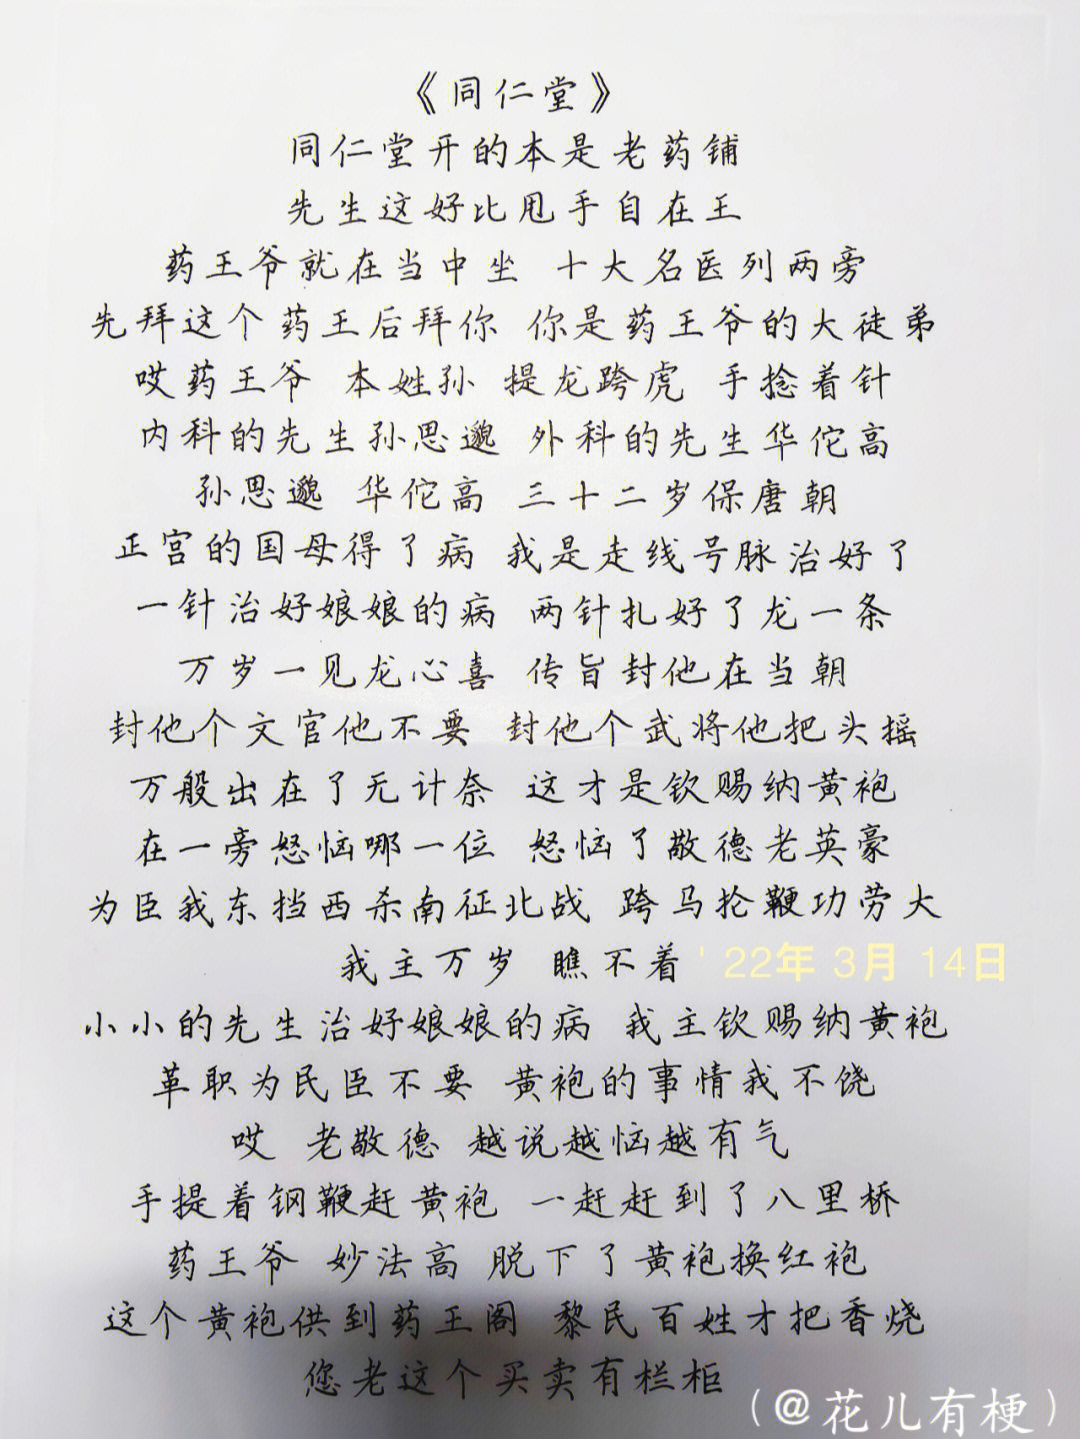 《同仁堂》
同仁堂开的本是老药铺
先生这好比甩手自在王
药王爷就在当中坐 十大名医列两旁
先拜这个药王后拜你 你是药王爷的大徒弟
哎药王爷 本姓孙 提龙跨虎 手捻着针
内科的先生孙思邈 外科的先生华佗高
孙思邈 华佗高 三十二岁保唐朝
正宫的国母得了病 我是走线号脉治好了
一针治好娘娘的病 两针扎好了龙一条
万岁一见龙心喜 传旨封他在当朝
封他个文官他不要 封他个武将他把头摇
万般出在了无计奈 这才是钦赐纳黄袍
在一旁怒恼哪一位 怒恼了敬德老英豪
为臣我东挡西杀南征北战 跨马抡鞭功劳大
我主万岁 瞧不着
'22年 3月 14日
小小的先生治好娘娘的病 我主钦赐纳黄袍
革职为民臣不要 黄袍的事情我不饶
哎 老敬德 越说越恼越有气
手提着钢鞭赶黄袍 一赶赶到了八里桥
药王爷 妙法高 脱下了黄袍换红袍
这个黄袍供到药王阁 黎民百姓才把香烧
您老这个买卖有栏柜
(@花儿有梗)